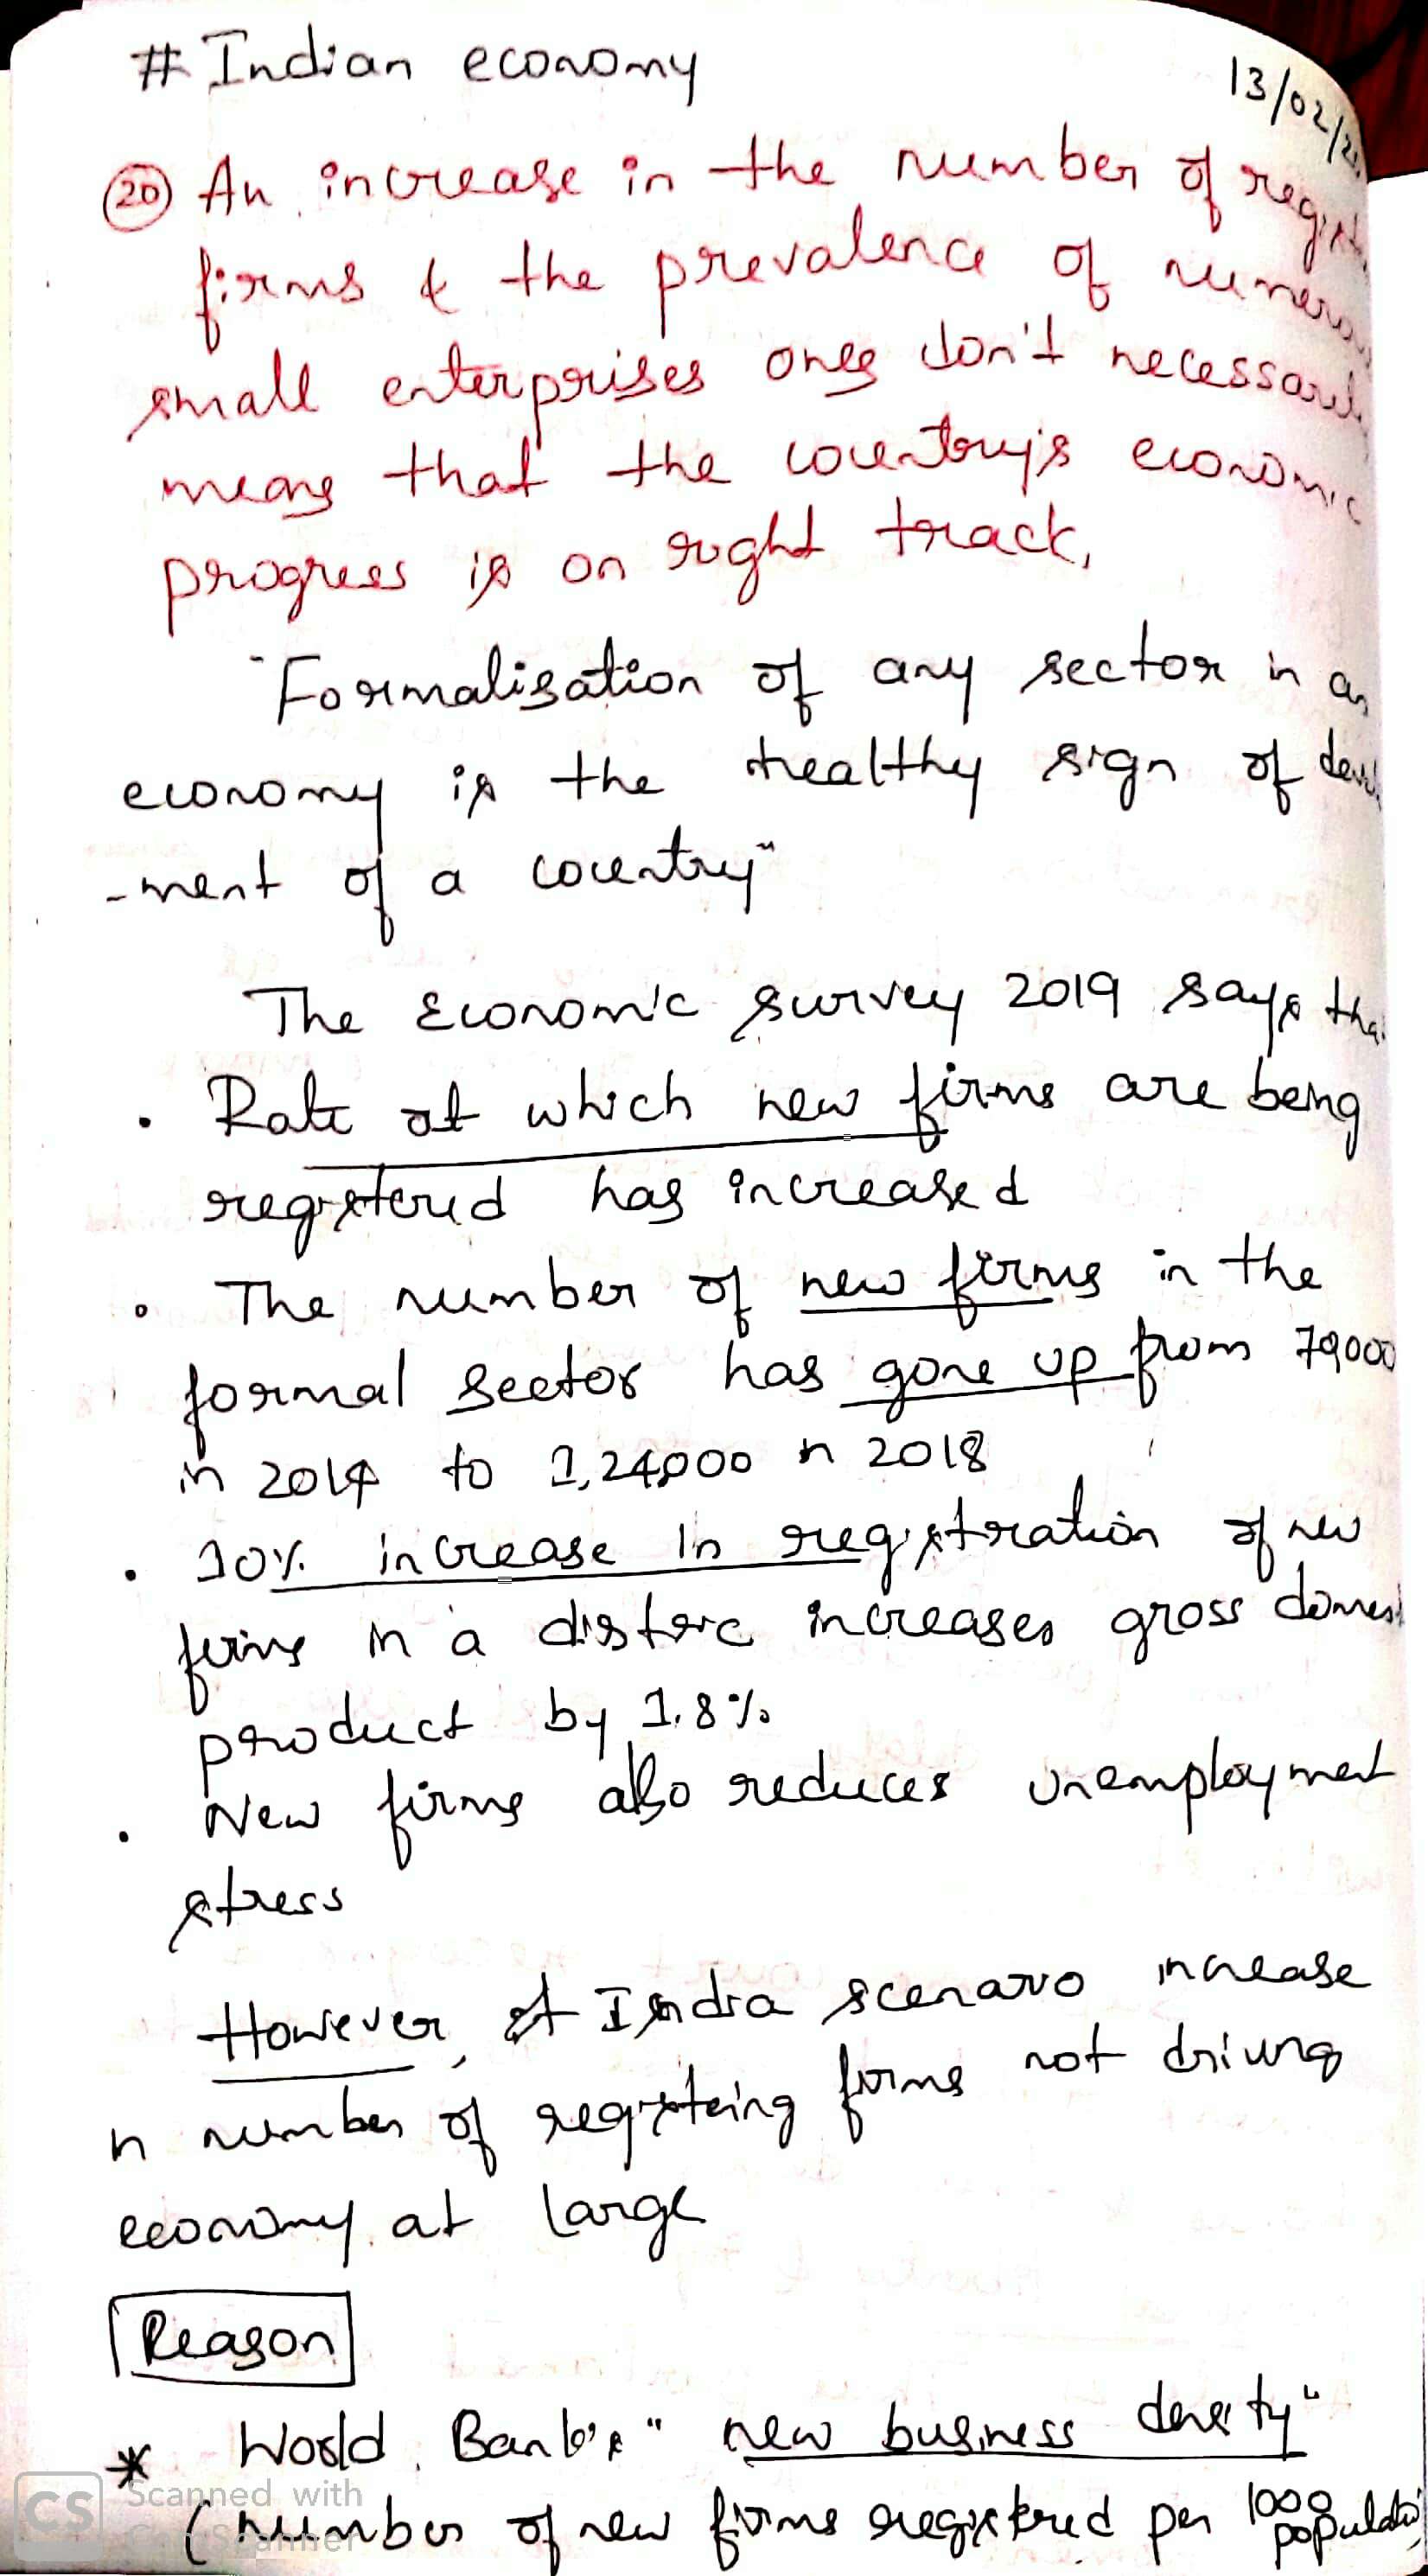 # Indian economy
13/02/2
20 An increase in the number of regist
firms & the prevalence of numero
small enterprises ones don't necessaril
means that the country's economic
progress is on right track,
"Formalisation of any sector in an
economy is the healthy sign of devel
-ment of a country"
The Economic survey 2019 says tha
. Rate at which new firms are being
registered has increased
. The number of new firms in the
formal sector has gone up from 79000
in 2014 to 1,24000 in 2018
. 10% increase In registration of new
firms in a distirc increases gross domest
product by 1.8%
. New firms also reduces unemployment
stress
However, at India scenario increase
n number of registeing firms not driving
economy at large
Reason
* World Bank's " new business density"
( number of new firms registered per 1000 population
CS Scanned with
CamScanner